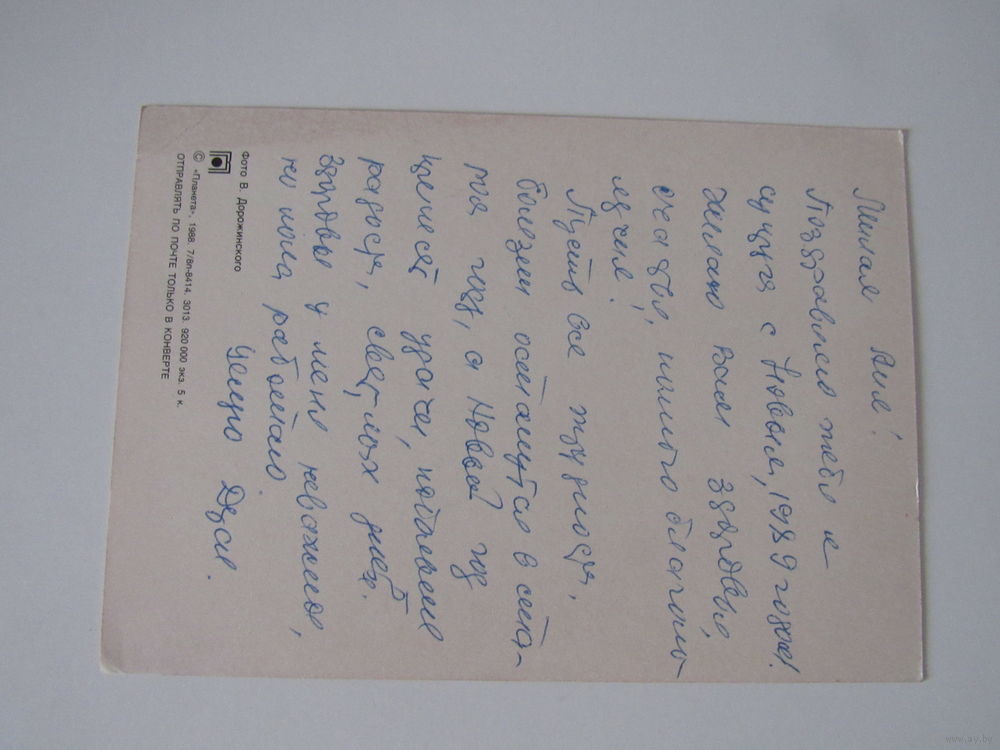 Милая Аня!
Поздравляю тебя и
супруга с Новым, 1989 годом!
Желаю Вам здоровья,
счастья, и благопо-
лучия!
Пусть все трудности,
болезни останутся в ста-
ром году, а Новый год
принесёт удачи, побольше
радости, светлых дней.
Здоровье у меня неважное,
но пока работаю.
Целую
Фото В. Дорожинского
© «Планета», 1988. 7/8п-8414. 3013. 920 000 экз. 5 к.
ОТПРАВЛЯТЬ ПО ПОЧТЕ ТОЛЬКО В КОНВЕРТЕ
www.ay.by